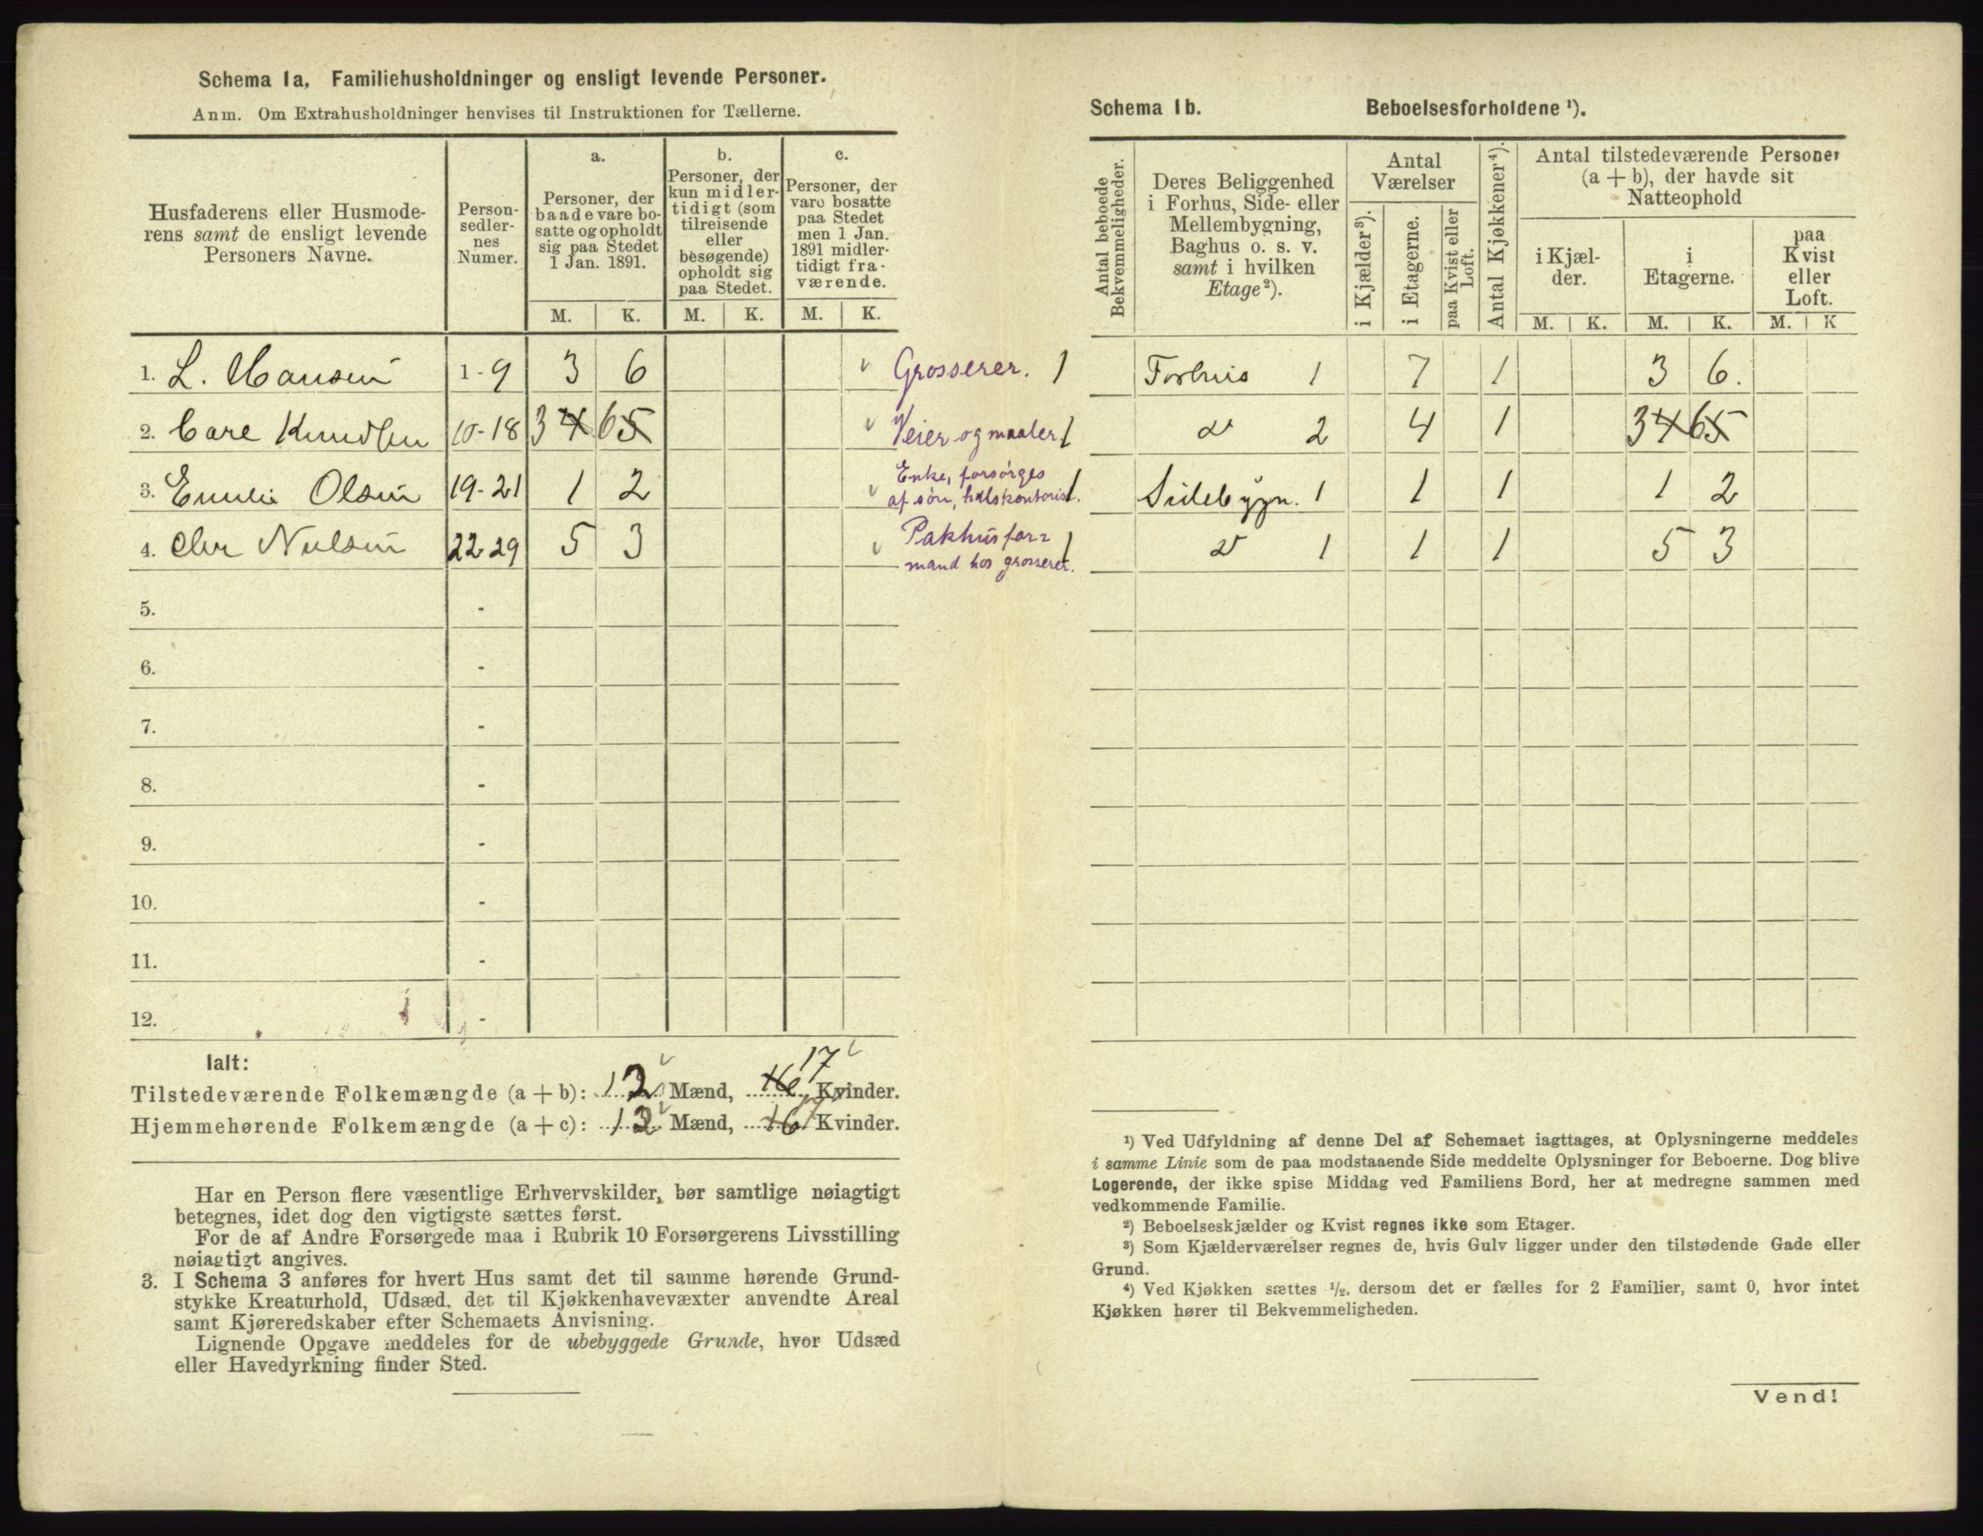 Schema 1a, Familiehusholdninger og ensligt levende Personer.
Anm. Om Extrahusholdninger henvises til Instruktionen for Tællerne.
Husfaderens eller Husmode-
rens samt de ensligt levende
Personers Navne.
Person-
sedler-
nes
Numer.
a.
Personer, der
baade vare bo-
satte og opholdt
sig paa Stedet
1 Jan. 1891.
b.
Personer, der
kun midler-
tidigt (som
tilreisende
eller
besøgende)
opholdt sig
paa Stedet.
c.
Personer, der
vare bosatte
paa Stedet
men 1 Jan.
1891 midler-
tidigt fra-
værende.
M. K. M. K. M. K.
1. L. Hansen 1-9 3 6 Grosserer. 1
2. Carl Knudsen 10-18 3 4 6 5 Veier og maaler 1
3. Emilie Olsen 19-21 1 2 Enke, forsørges
af søn, hdlskontorist. 1
4. Chr Nielsen 22-29 5 3 Pakhusfor=
mand hos grosserer. 1
5. -
6. -
7. -
8. -
9. -
10. -
11. -
12. -
Ialt:
17
Tilstedeværende Folkemængde (a + b): 12 Mænd, 16 Kvinder.
Hjemmehørende Folkemængde (a + c): 12 Mænd, 16 17 Kvinder.
Har en Person flere væsentlige Erhvervskilder, bør samtlige nøiagtigt
betegnes, idet dog den vigtigste sættes først.
For de af Andre Forsørgede maa i Rubrik 10 Forsørgerens Livsstilling
nøiagtigt angives.
3. I Schema 3 anføres for hvert Hus samt det til samme hørende Grund-
stykke Kreaturhold, Udsæd, det til Kjøkkenhavevæxter anvendte Areal
samt Kjøreredskaber efter Schemaets Anvisning.
Lignende Opgave meddeles for de ubebyggede Grunde, hvor Udsæd
eller Havedyrkning finder Sted.
Schema 1b. Beboelsesforholdene ¹).
Antal beboede
Bekvemmeligheder.
Deres Beliggenhed
i Forhus, Side- eller
Mellembygning,
Baghus o. s. v.
samt i hvilken
Etage²).
Antal
Værelser
i Kjælder³).
i Etagerne.
paa Kvist eller
Loft.
Antal Kjøkkener⁴).
Antal tilstedeværende Personer
(a + b), der havde sit
Natteophold
i Kjæl-
der.
i
Etagerne.
paa
Kvist
eller
Loft.
M. K. M. K. M. K
Forhus 1 7 1 3 6.
" 2 4 1 3 4 6 5
Sidebygn. 1 1 1 1 2
" 1 1 1 5 3
¹) Ved Udfyldning af denne Del af Schemaet iagttages, at Oplysningerne meddeles
i samme Linie som de paa modstaaende Side meddelte Oplysninger for Beboerne. Dog blive
Logerende, der ikke spise Middag ved Familiens Bord, her at medregne sammen med
vedkommende Familie.
²) Beboelseskjælder og Kvist regnes ikke som Etager.
³) Som Kjælderværelser regnes de, hvis Gulv ligger under den tilstødende Gade eller
Grund.
⁴) Ved Kjøkken sættes ½, dersom det er fælles for 2 Familier, samt 0, hvor intet
Kjøkken hører til Bekvemmeligheden.
Vend!